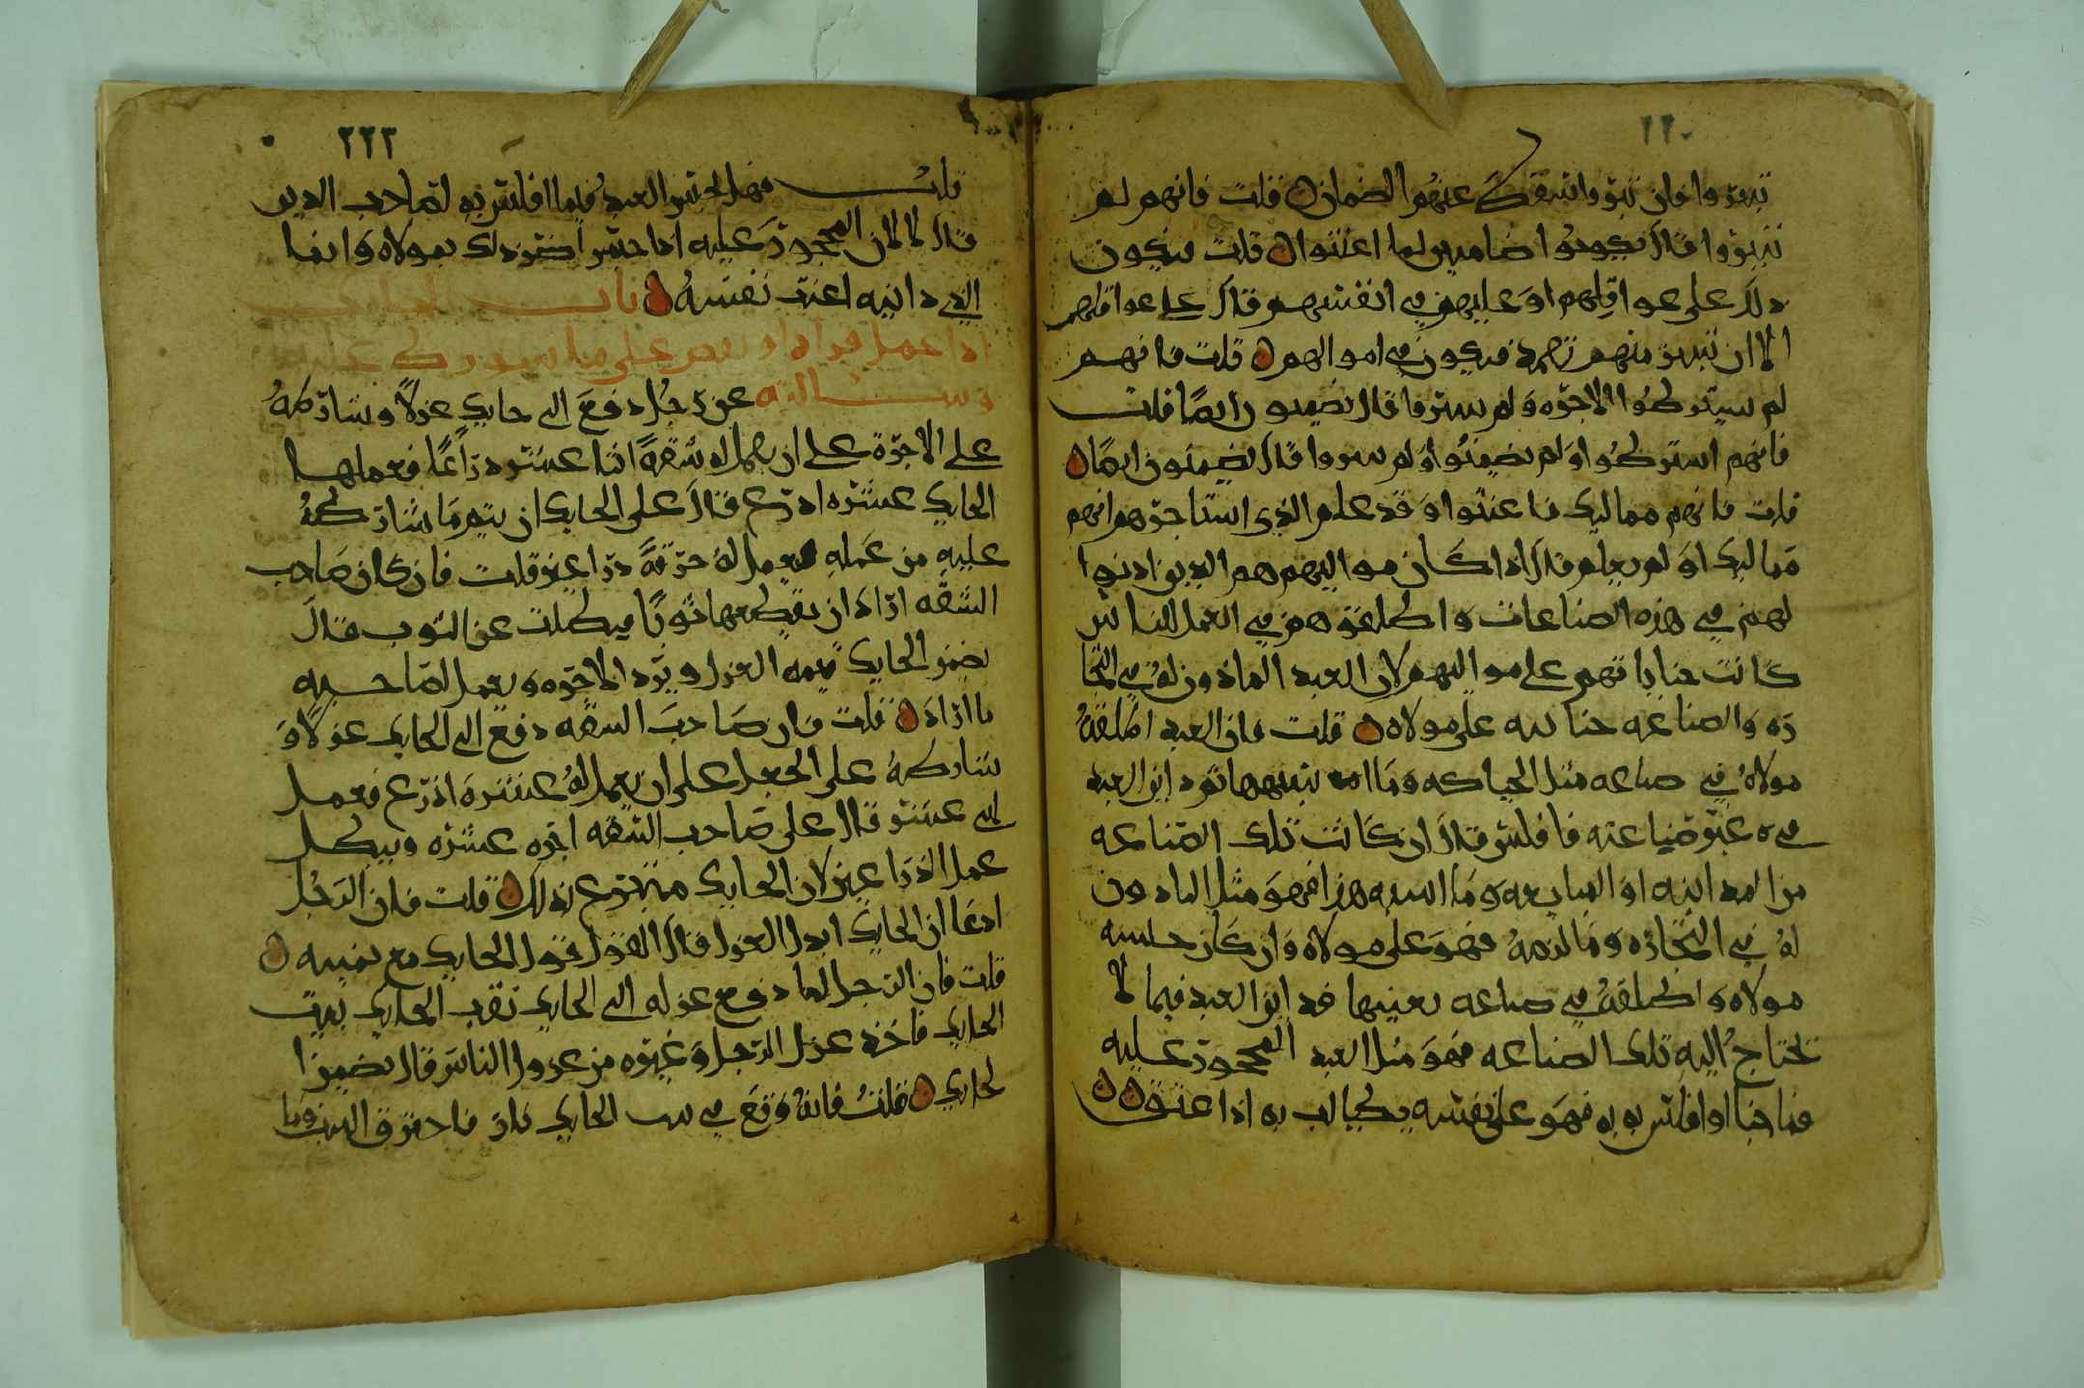 ٢٢٠
تبروا فان تبروا سقط عنهم الضمان قلت فانهم لم
تبروا قال يكونوا ضامنين لما اعنتوا قلت فيكون
ذلك على عواقلهم او عليهم في انفسهم قال على عواقلهم
الا ان تبين منهم فيكون في اموالهم قلت فانهم
لم يشتركوا الاجره ولم يبروا قال يضمنون ايضا قلت
فانهم اشتركوا ولم يضمنوا ولم يبروا قال يضمنون ايضا
قلت فانهم مماليك فاعنتوا وقد علم الذي استاجرهم انهم
مماليك او لم يعلم قال اذا كان مواليهم هم الذين اذنوا
لهم في هذه الصناعات واطلقوهم في العمل للناس
كانت جناياتهم على مواليهم لان العبد الماذون له في التجا
ره والصناعه جنايته على مولاه قلت فان العبد اطلقه
مولاه في صناعه مثل الحياكه وما اشبهها فادان العبد
في غير صناعته فافلس قال ان كانت تلك الصناعه
من المداينه او المبايعه وما اشبه هذا فهو مثل الماذون
له في التجاره وما لزمه فهو على مولاه وان كان حبسه
مولاه واطلقه في صناعه بعينها فداين العبد فيما لا
تحتاج اليه تلك الصناعه فهو مثل العبد المحجور عليه
فما جنا او افلس به فهو على نفسه يطالب به اذا عتق
٢٢٣
قلت فهل يحبس العبد فيما افلس به لصاحب الدين
قال لا لان المحجور عليه اذا حبس اضر ذلك بمولاه وانما
الذي داينه اعنت نفسه باب
اذا عمل او نقص على ما شورط عليه
وسالته عن رجل دفع الى حايك غزلا وشارطه
على الاجره على ان يعمل له شقه اثنا عشره ذراعا فعملها
الحايك عشره اذرع قال على الحايك ان يتم ما شارطه
عليه من عمله يعمل له خرقه ذراعين قلت فان كان صاحب
الشقه اراد ان يقطعها ثوبا فبطلت عن الثوب قال
يضمن الحايك قيمه الغزل ويرد الاجره ويعمل لصاحبه
ما اراد قلت فان صاحب الشقه دفع الى الحايك غزلا و
شارطه على الجعل على ان يعمل له عشره اذرع فعمل
اثنى عشر قال على صاحب الشقه اجره عشره ويبطل
عمل الذراعين لان الحايك متبرع بذلك قلت فان الرجل
ادعا ان الحايك ابدل الغزل قال القول قول الحايك مع يمينه
قلت فان الرجل لما دفع غزله الى الحايك نقب الحايك بيت
الحايك فاخذ غزل الرجل وغيره من غزول الناس قال يضمن ا
لحايك قلت فانه وقع في بيت الحايك نار فاحترق البيت وما